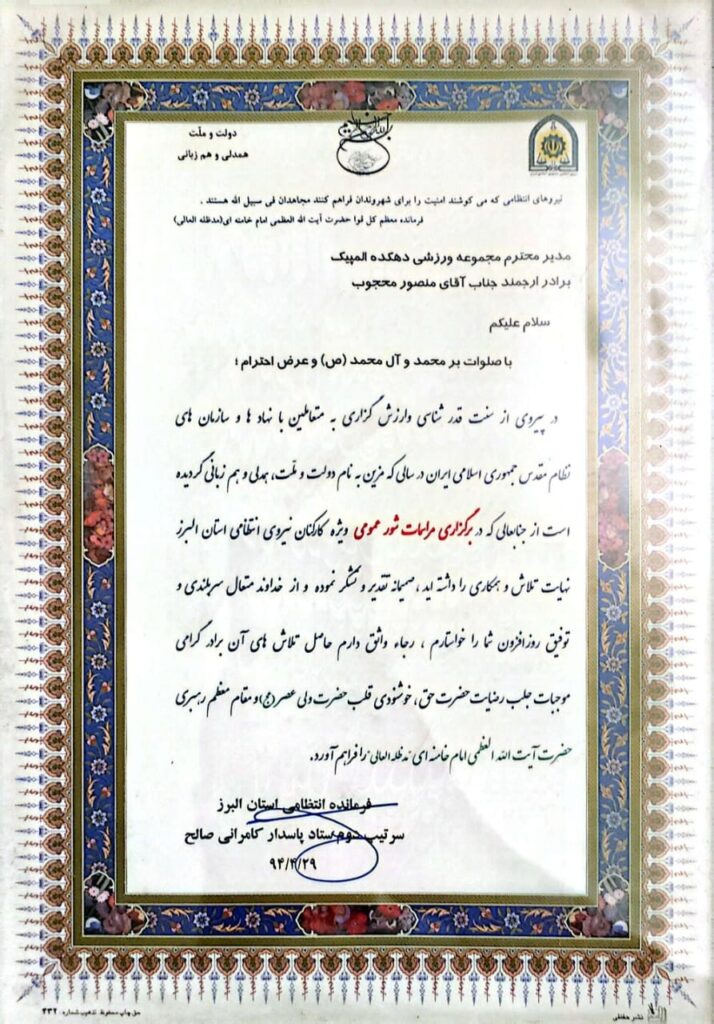 دولت و ملّت
همدلی و هم زبانی
نیروهای انتظامی که می کوشند امنیت را برای شهروندان فراهم کنند مجاهدان فی سبیل الله هستند .
فرمانده معظم کل قوا حضرت آیت الله العظمی امام خامنه ای(مدظله العالی)
مدیر محترم مجموعه ورزشی دهکده المپیک
برادر ارجمند جناب آقای منصور محجوب
سلام علیکم
با صلوات بر محمد و آل محمد (ص) و عرض احترام ؛
در پیروی از سنت قدر شناسی وارزش گزاری به متعاملین با نهاد ها و سازمان های
نظام مقدس جمهوری اسلامی ایران در سالی که مزین به نام دولت و ملت، همدلی و هم زبانی گردیده
است از جنابعالی که در برگزاری مراسات شور عمومی ویژه کارکنان نیروی انتظامی استان البرز
نهایت تلاش و همکاری را داشته اید ، صمیمانه تقدیر و تشکر نموده و از خداوند متعال سربلندی و
توفیق روزافزون شما را خواستارم ، رجاء واثق دارم حاصل تلاش های آن برادر گرامی
موجبات جلب رضایت حضرت حق ، خوشنودی قلب حضرت ولی عصر(عج) و مقام معظم رهبری
حضرت آیت الله العظمی امام خامنه ای "مدظله العالی" را فراهم آورد.
فرمانده انتظامی استان البرز
سرتیپ دوم ستاد پاسدار کامرانی صالح
۹۴/۴/۲۹
نشر حفظی
حق چاپ محفوظ تذهیب شماره : ۴۳۲